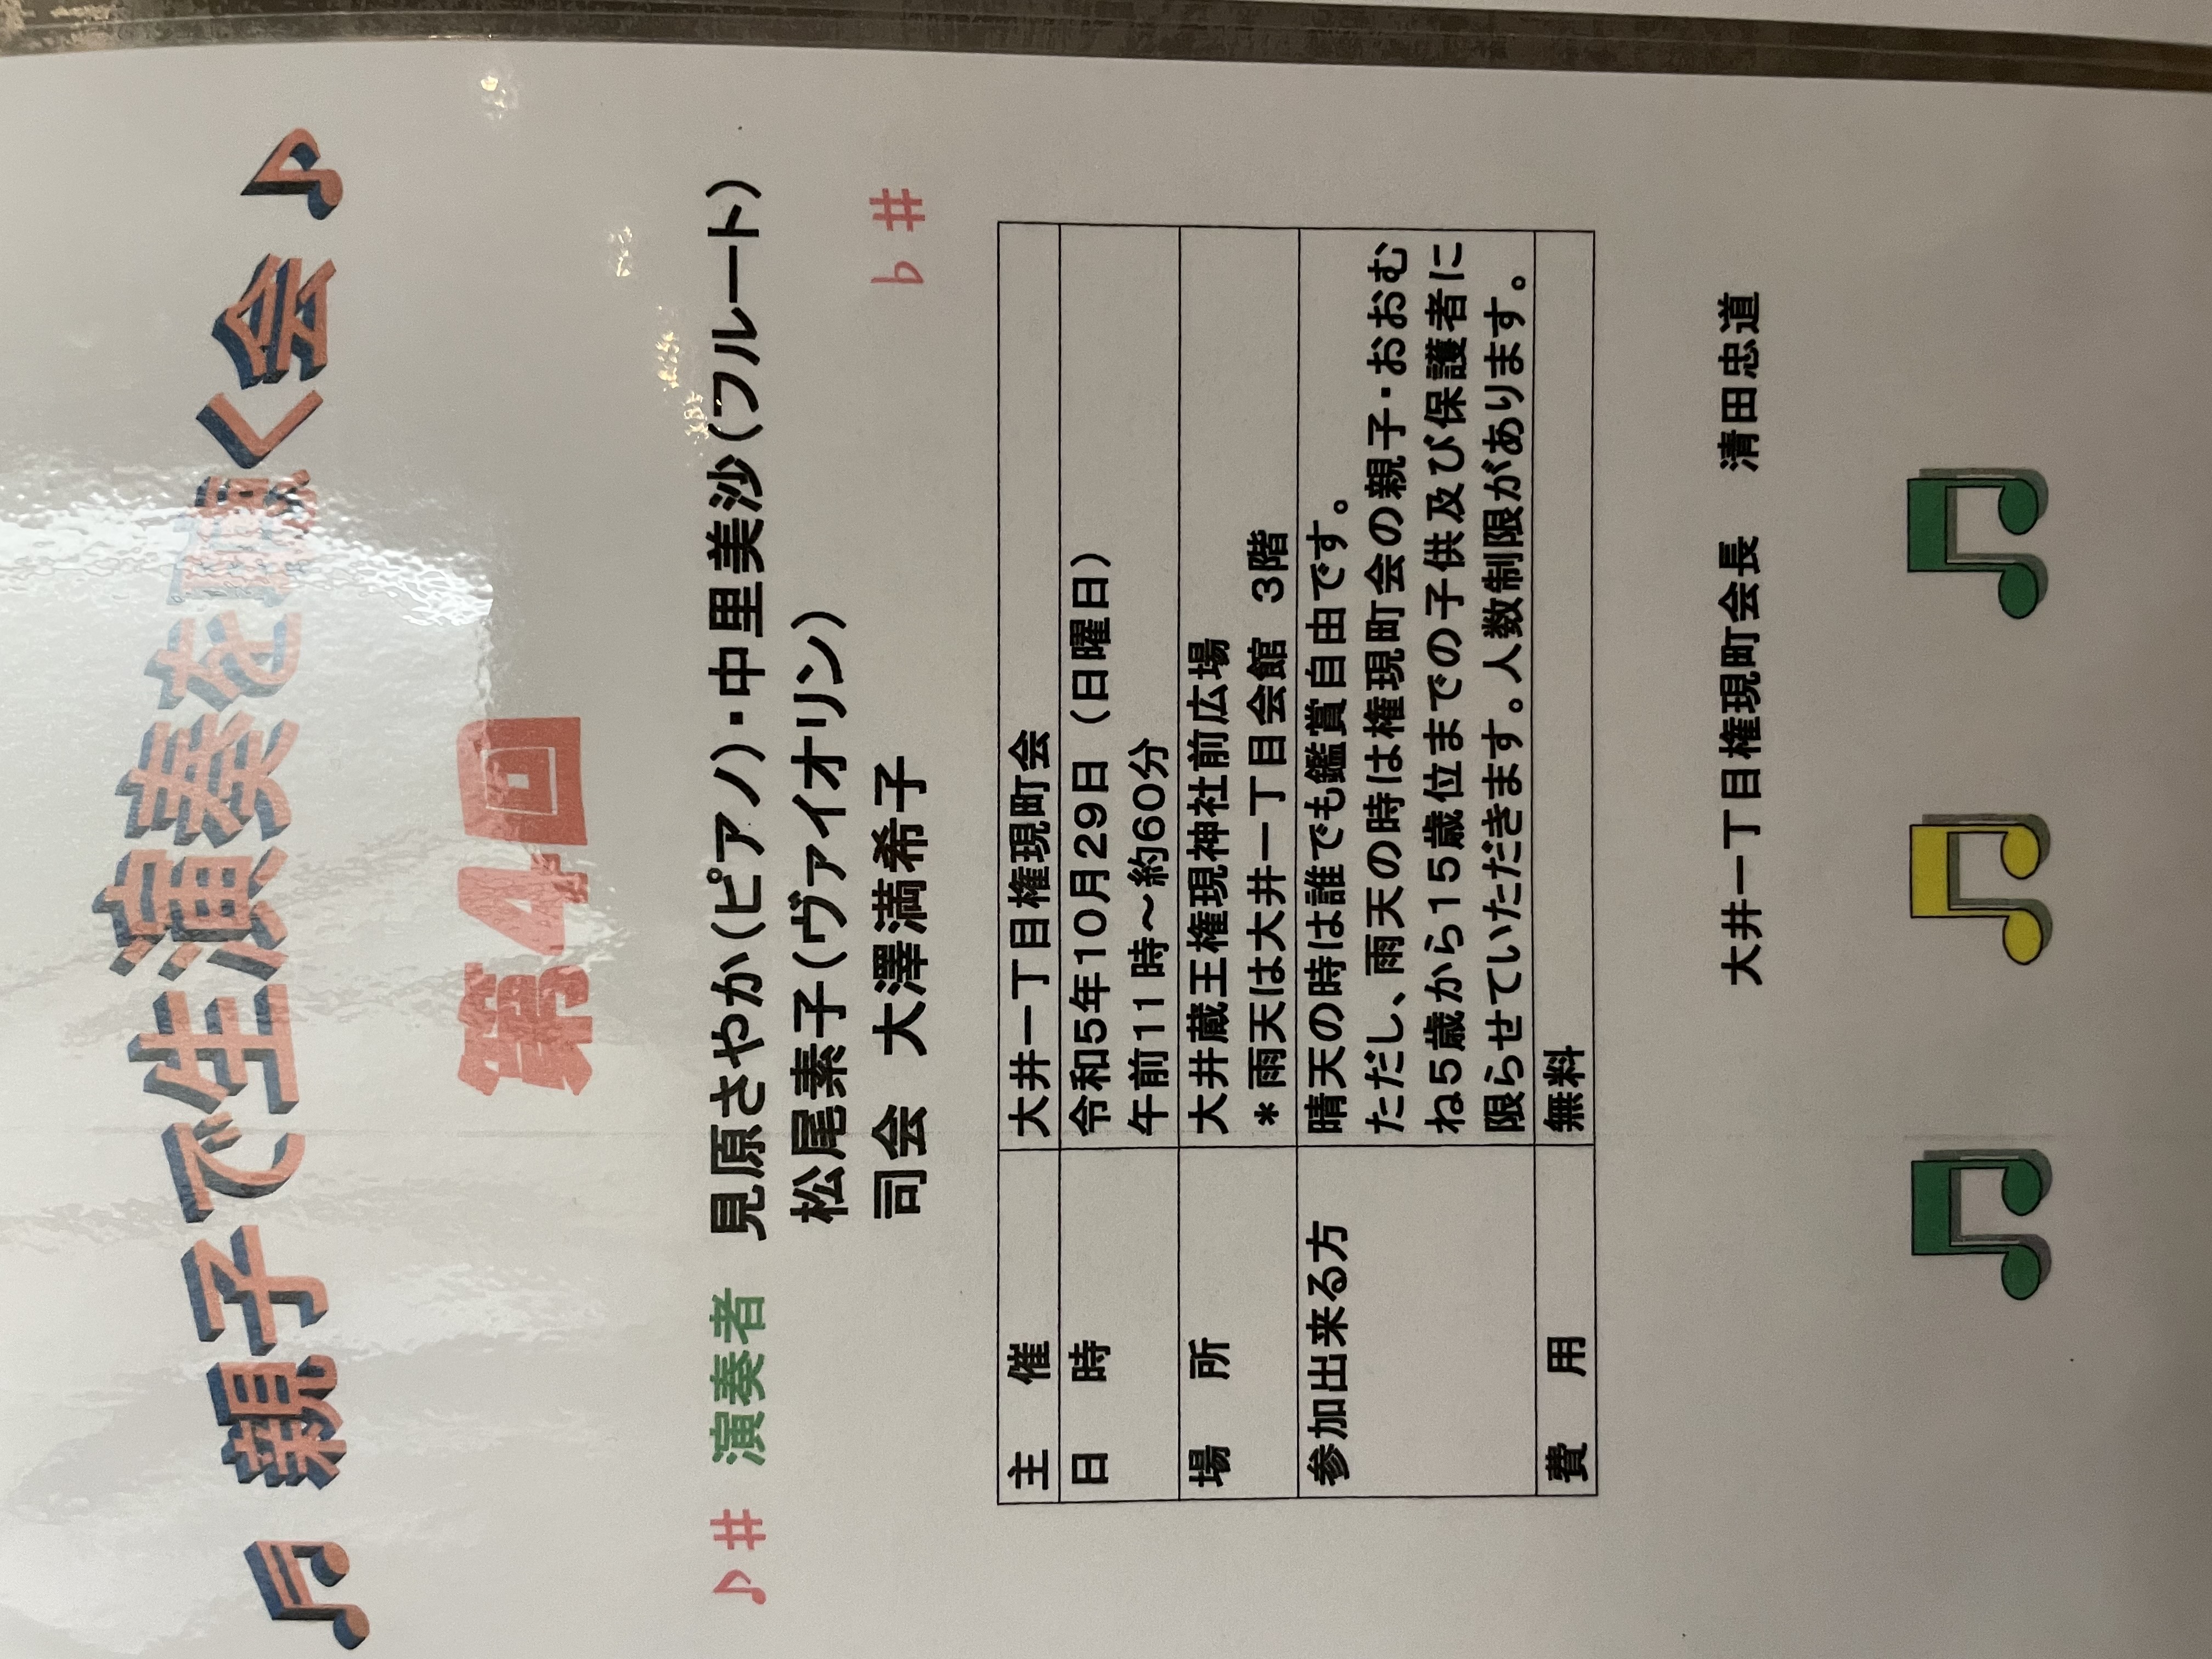 ♫ 親子で生演奏を聴く会 ♪
第4回
♪ # 演奏者 見原さやか(ピアノ)・中里美沙(フルート)
松尾素子(ヴァイオリン)
司会 大澤満希子 ♭ #
主 催 大井一丁目権現町会
日 時 令和5年10月29日(日曜日)
午前11時～約60分
場 所 大井蔵王権現神社前広場
＊雨天は大井一丁目会館 3階
参加出来る方 晴天の時は誰でも鑑賞自由です。
ただし、雨天の時は権現町会の親子・おおむ
ね5歳から15歳位までの子供及び保護者に
限らせていただきます。人数制限があります。
費 用 無料
大井一丁目権現町会長 清田忠道